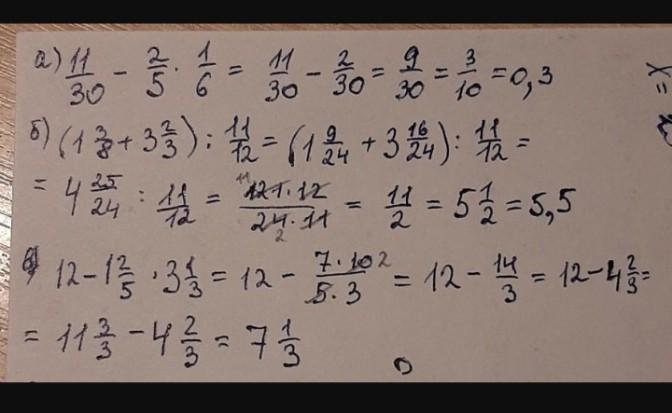 а) 11/30 - 2/5 · 1/6 = 11/30 - 2/30 = 9/30 = 3/10 = 0,3
б) (1 3/8 + 3 2/3) : 11/12 = (1 9/24 + 3 16/24) : 11/12 =
= 4 25/24 : 11/12 = 121·12/24·11 = 11/2 = 5 1/2 = 5,5
в) 12 - 1 2/5 · 3 1/3 = 12 - 7·10/5·3 = 12 - 14/3 = 12 - 4 2/3 =
= 11 3/3 - 4 2/3 = 7 1/3